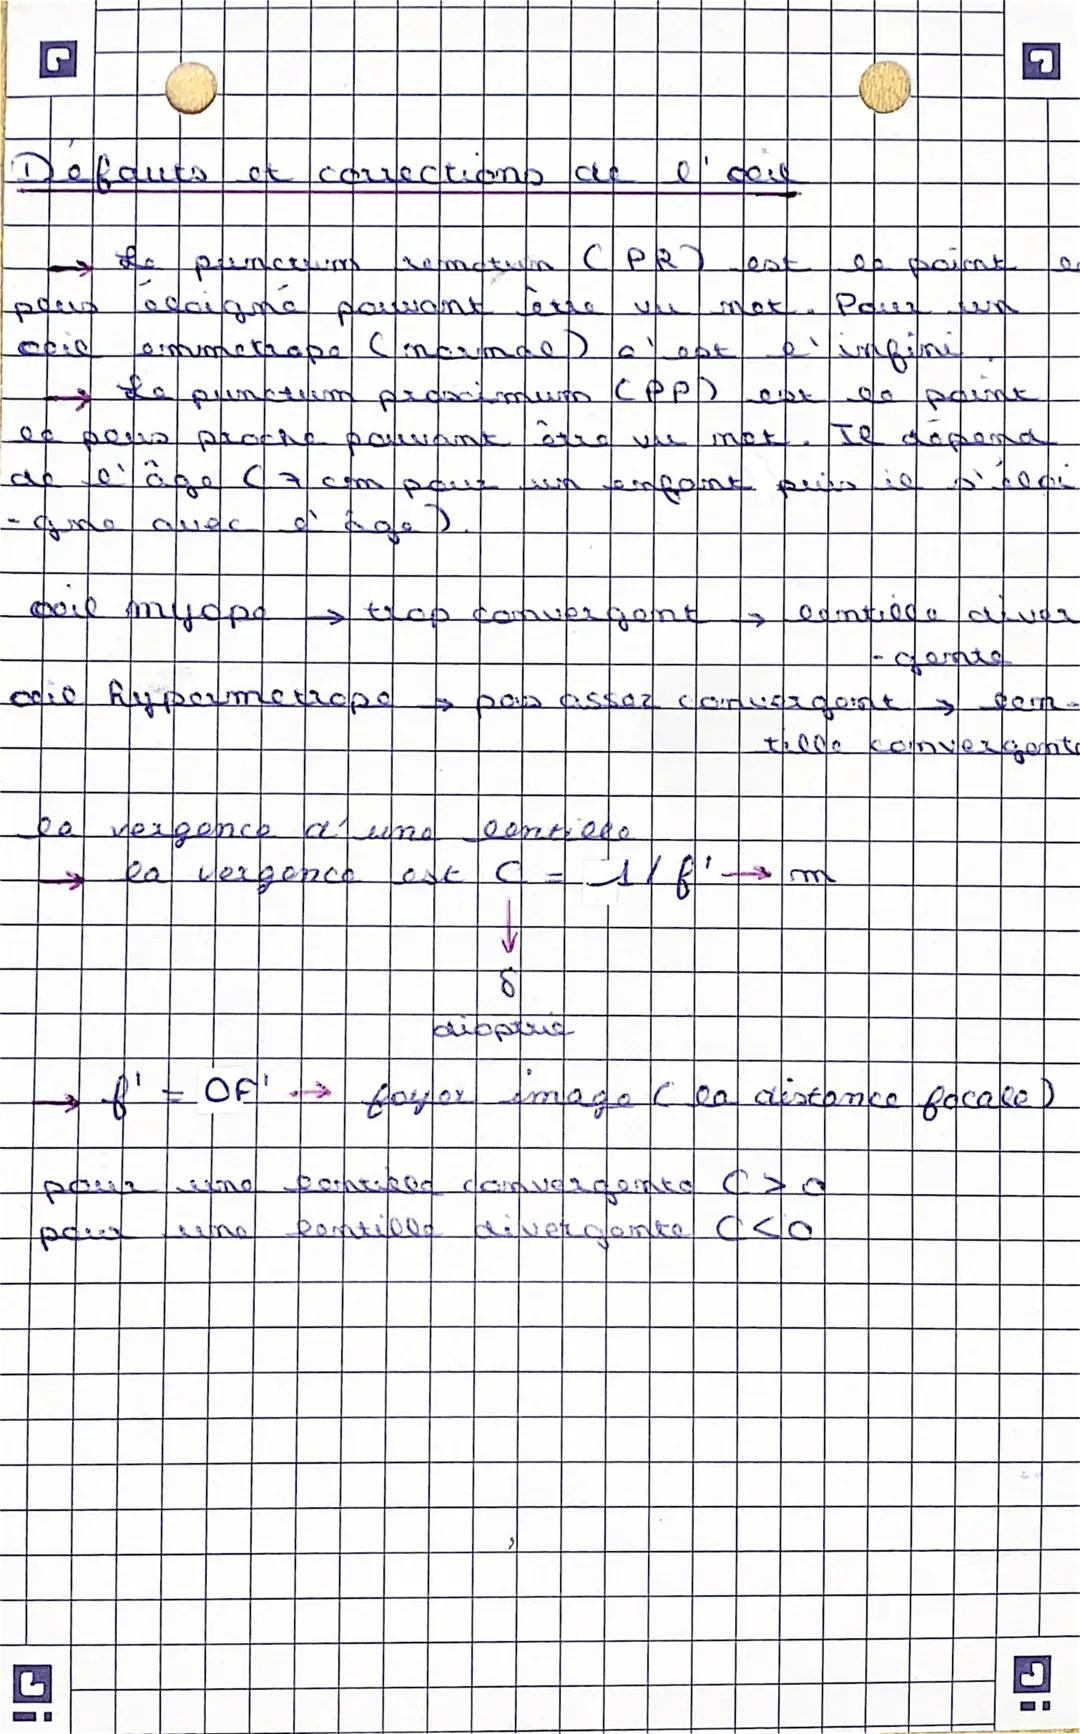 Défauts et corrections de l'œil
→ Le punctum remotum (PR) est le point le
plus éloigné pouvant être vu net. Pour un
œil emmetrope (normal) c'est l'infini.
→ Le punctum proximum (PP) est le point
le plus proche pouvant être vu net. Il dépend
de l'âge (7 cm pour un enfant puis il s'éloi
-gne avec l'âge).
œil myope → trop convergent → lentille diver
-gente
œil hypermetrope → pas assez convergent → len-
tille convergente
la vergence d'une lentille
→ la vergence est C = 1/f' → m
↓
δ
dioptrie
→ f' = OF' → foyer image (la distance focale)
pour une lentille convergente C > 0
pour une lentille divergente C < 0